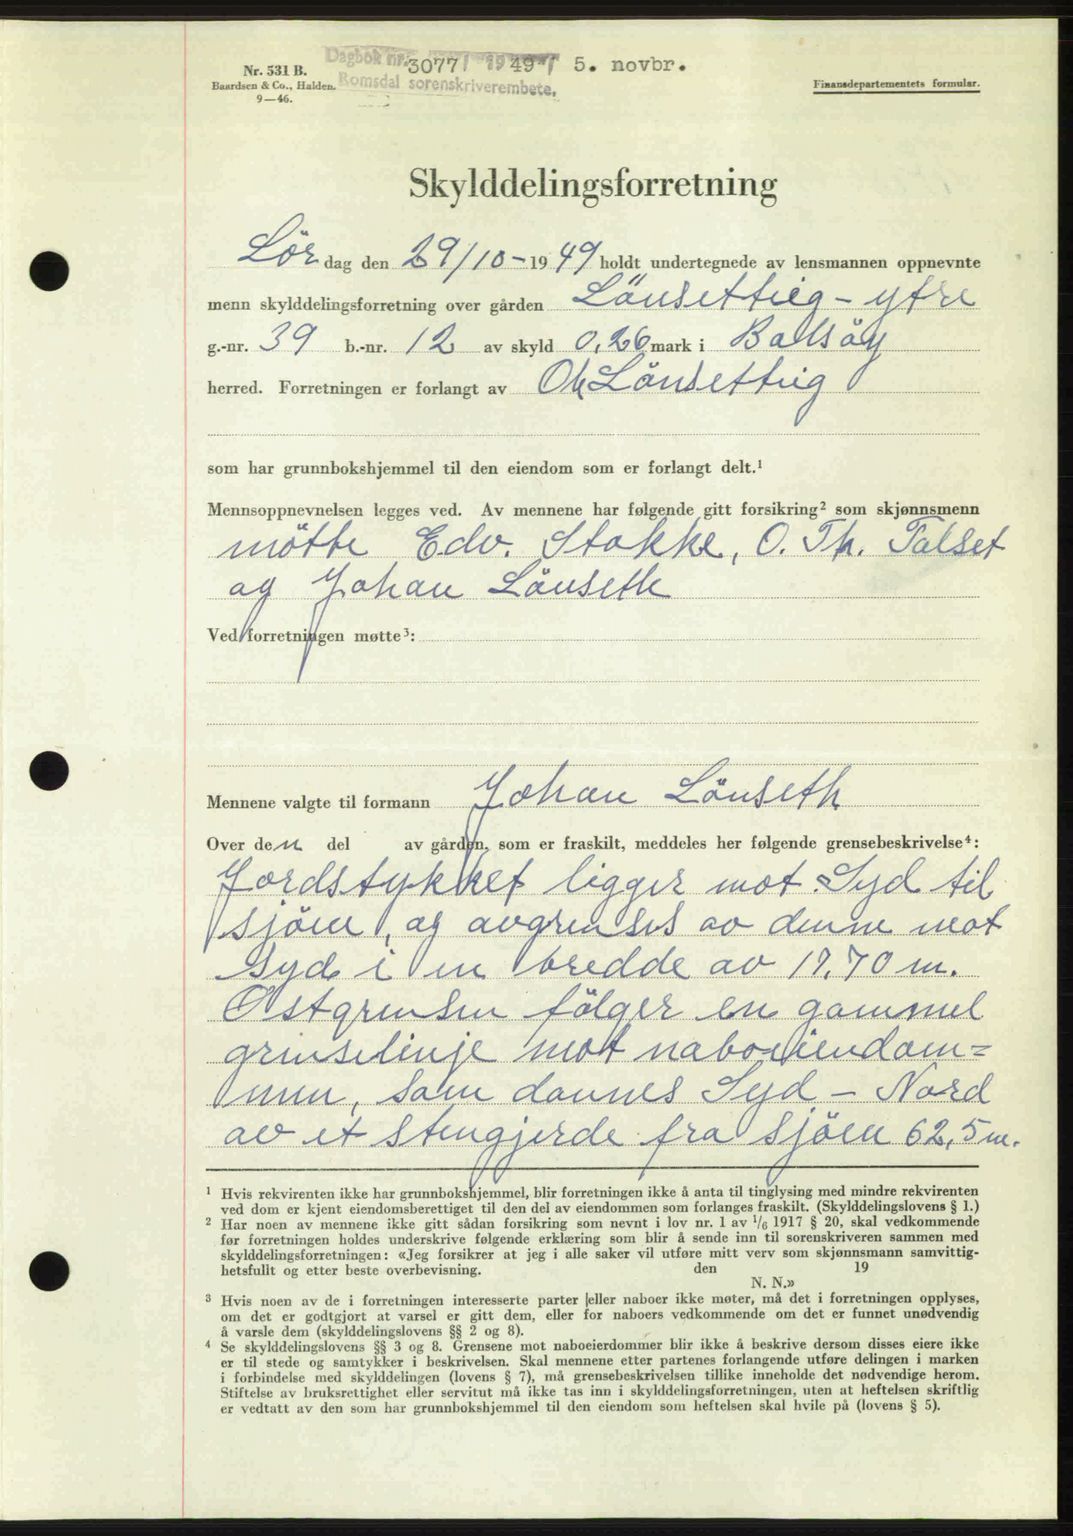 Dagbok nr. 3077 / 1949 / 5. novbr.
Nr. 531 B.
Baardsen & Co., Halden.
9—46.
Romsdal sorenskriverembete.
Finansdepartementets formular.
Skylddelingsforretning
Lör dag den 29/10 - 1949 holdt undertegnede av lensmannen oppnevnte
menn skylddelingsforretning over gården Lönsettrig - ytre
g.-nr. 39 b.-nr. 12 av skyld 0,26 mark i Bolsöy
herred. Forretningen er forlangt av O. Lönsettrig
som har grunnbokshjemmel til den eiendom som er forlangt delt.¹
Mennsoppnevnelsen legges ved. Av mennene har følgende gitt forsikring² som skjønnsmenn
mötte Edv. Stokke, O. Th. Talset
og Johan Lönseth
Ved forretningen møtte³:
Mennene valgte til formann Johan Lönseth
Over den del av gården, som er fraskilt, meddeles her følgende grensebeskrivelse⁴:
Jordstykket ligger mot Syd til
sjöen, og avgrenses av denne mot
Syd i en bredde av 17,70 m.
Östgrensen fölger en gammel
grenselinje mot naboeiendom=
men, som dannes Syd - Nord
av et stengjerde fra sjöen 62,5 m.
¹ Hvis rekvirenten ikke har grunnbokshjemmel, blir forretningen ikke å anta til tinglysing med mindre rekvirenten
ved dom er kjent eiendomsberettiget til den del av eiendommen som forlanges fraskilt. (Skylddelingslovens § 1.)
² Har noen av mennene ikke gitt sådan forsikring som nevnt i lov nr. 1 av 1/6 1917 § 20, skal vedkommende
før forretningen holdes underskrive følgende erklæring som blir å sende inn til sorenskriveren sammen med
skylddelingsforretningen: «Jeg forsikrer at jeg i alle saker vil utføre mitt verv som skjønnsmann samvittig-
hetsfullt og etter beste overbevisning. den 19
N. N.»
³ Hvis noen av de i forretningen interesserte parter eller naboer ikke møter, må det i forretningen opplyses,
om det er godtgjort at varsel er gitt dem, eller for naboers vedkommende om det er funnet unødvendig
å varsle dem (skylddelingslovens §§ 2 og 8).
⁴ Se skylddelingslovens §§ 3 og 8. Grensene mot naboeierdommer blir ikke å beskrive dersom disses eiere ikke
er til stede og samtykker i beskrivelsen. Skal mennene etter partenes forlangende utføre delingen i marken
i forbindelse med skylddelingen (lovens § 7), må grensebeskrivelsen tillike inneholde det nødvendige herom.
Stiftelse av bruksrettighet eller servitut må ikke tas inn i skylddelingsforretningen, uten at heftelsen skriftlig
er vedtatt av den som har grunnbokshjemmel til den eiendom som heftelsen skal hvile på (lovens § 5).